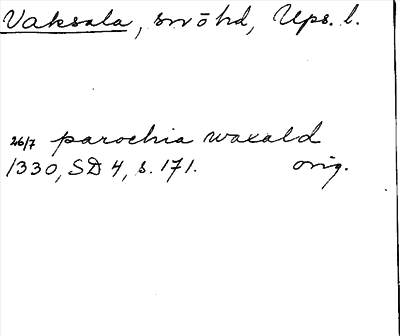 Vaksala, snöhd, Ups. l.
26/7 parochia waxald
1330, SD 4, s. 171. orig.